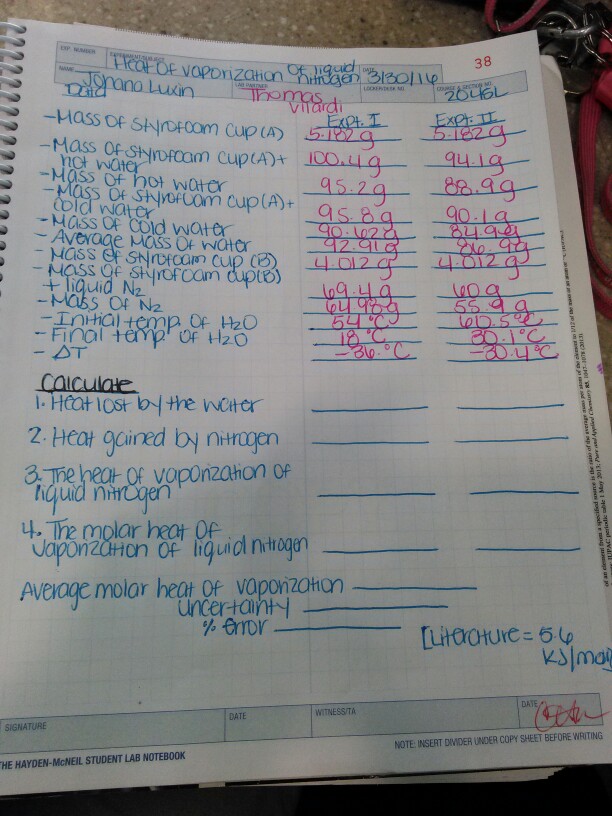 EXP. NUMBER
EXPERIMENT/SUBJECT
Heat Of vaporization Of liquid nitrogen
DATE
3/30/16
38
NAME
LAB PARTNER
Thomas Vilardi
LOCKER/DESK NO.
COURSE & SECTION NO.
2046L
Data
Expt. I Expt. II
- Mass Of Styrofoam Cup (A) 5.182g 5.182g
- Mass of Styrofoam cup (A) +
hot water 100.4g 94.1g
- Mass of hot water 95.2g 88.9g
- Mass of Styrofoam cup (A) +
cold water 95.8g 90.1g
- Mass of cold water 90.62g 84.9g
- Average Mass Of water 92.91g 86.9g
- Mass Of Styrofoam cup (B) 4.012g 4.012g
- Mass of Styrofoam cup (B)
+ liquid N2 69.4g 60g
- Mass Of N2 64.98g 55.9g
- Initial temp. Of H2O 54°C 60.5°C
- Final temp. Of H2O 18°C 30.1°C
- ΔT -36.°C -30.4°C
Calculate
1. Heat lost by the water
2. Heat gained by nitrogen
3. The heat of vaporization of
liquid nitrogen
4. The molar heat Of
Vaporization of liquid nitrogen
Average molar heat of vaporization
uncertainty
% error
[Literature = 5.6
KJ/mol]
SIGNATURE
DATE
WITNESS/TA
DATE
THE HAYDEN-McNEIL STUDENT LAB NOTEBOOK
NOTE: INSERT DIVIDER UNDER COPY SHEET BEFORE WRITING